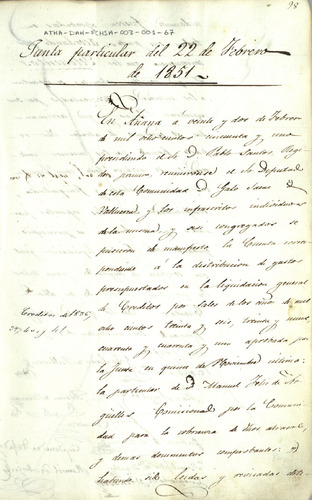 98
ATHA-DAH-FCHSA-003-001-67
Junta particular del 22 de Febrero
de 1851
En Añana a veinte y dos de Febrero
de mil ochocientos cincuenta y uno
presidiendo el Sr. D. Pablo Santos, Regi
dor primero, reunieronse el Sr. Diputado
de esta Comunidad D. Galo Saenz de
Valluerca y los infrascritos individuos
de la misma, y asi congregados se
pusieron de manifiesto la Cuenta corres
pondiente á la distribucion de gastos
presupuestados en la liquidacion general
de Creditos por Sales de los años de mil
ocho cientos treinta y seis, treinta y nueve
cuarenta y cuarenta y uno aprobada por
la Junta en quince de Noviembre ultimo:
la particular de D. Manuel Felix de
Comisionado por la Comuni
dad para la cobranza de
y demas documentos comprobantes: y
habiendo sido leidas y revisadas dete
Creditos de 1836,
39, 40, y 41.